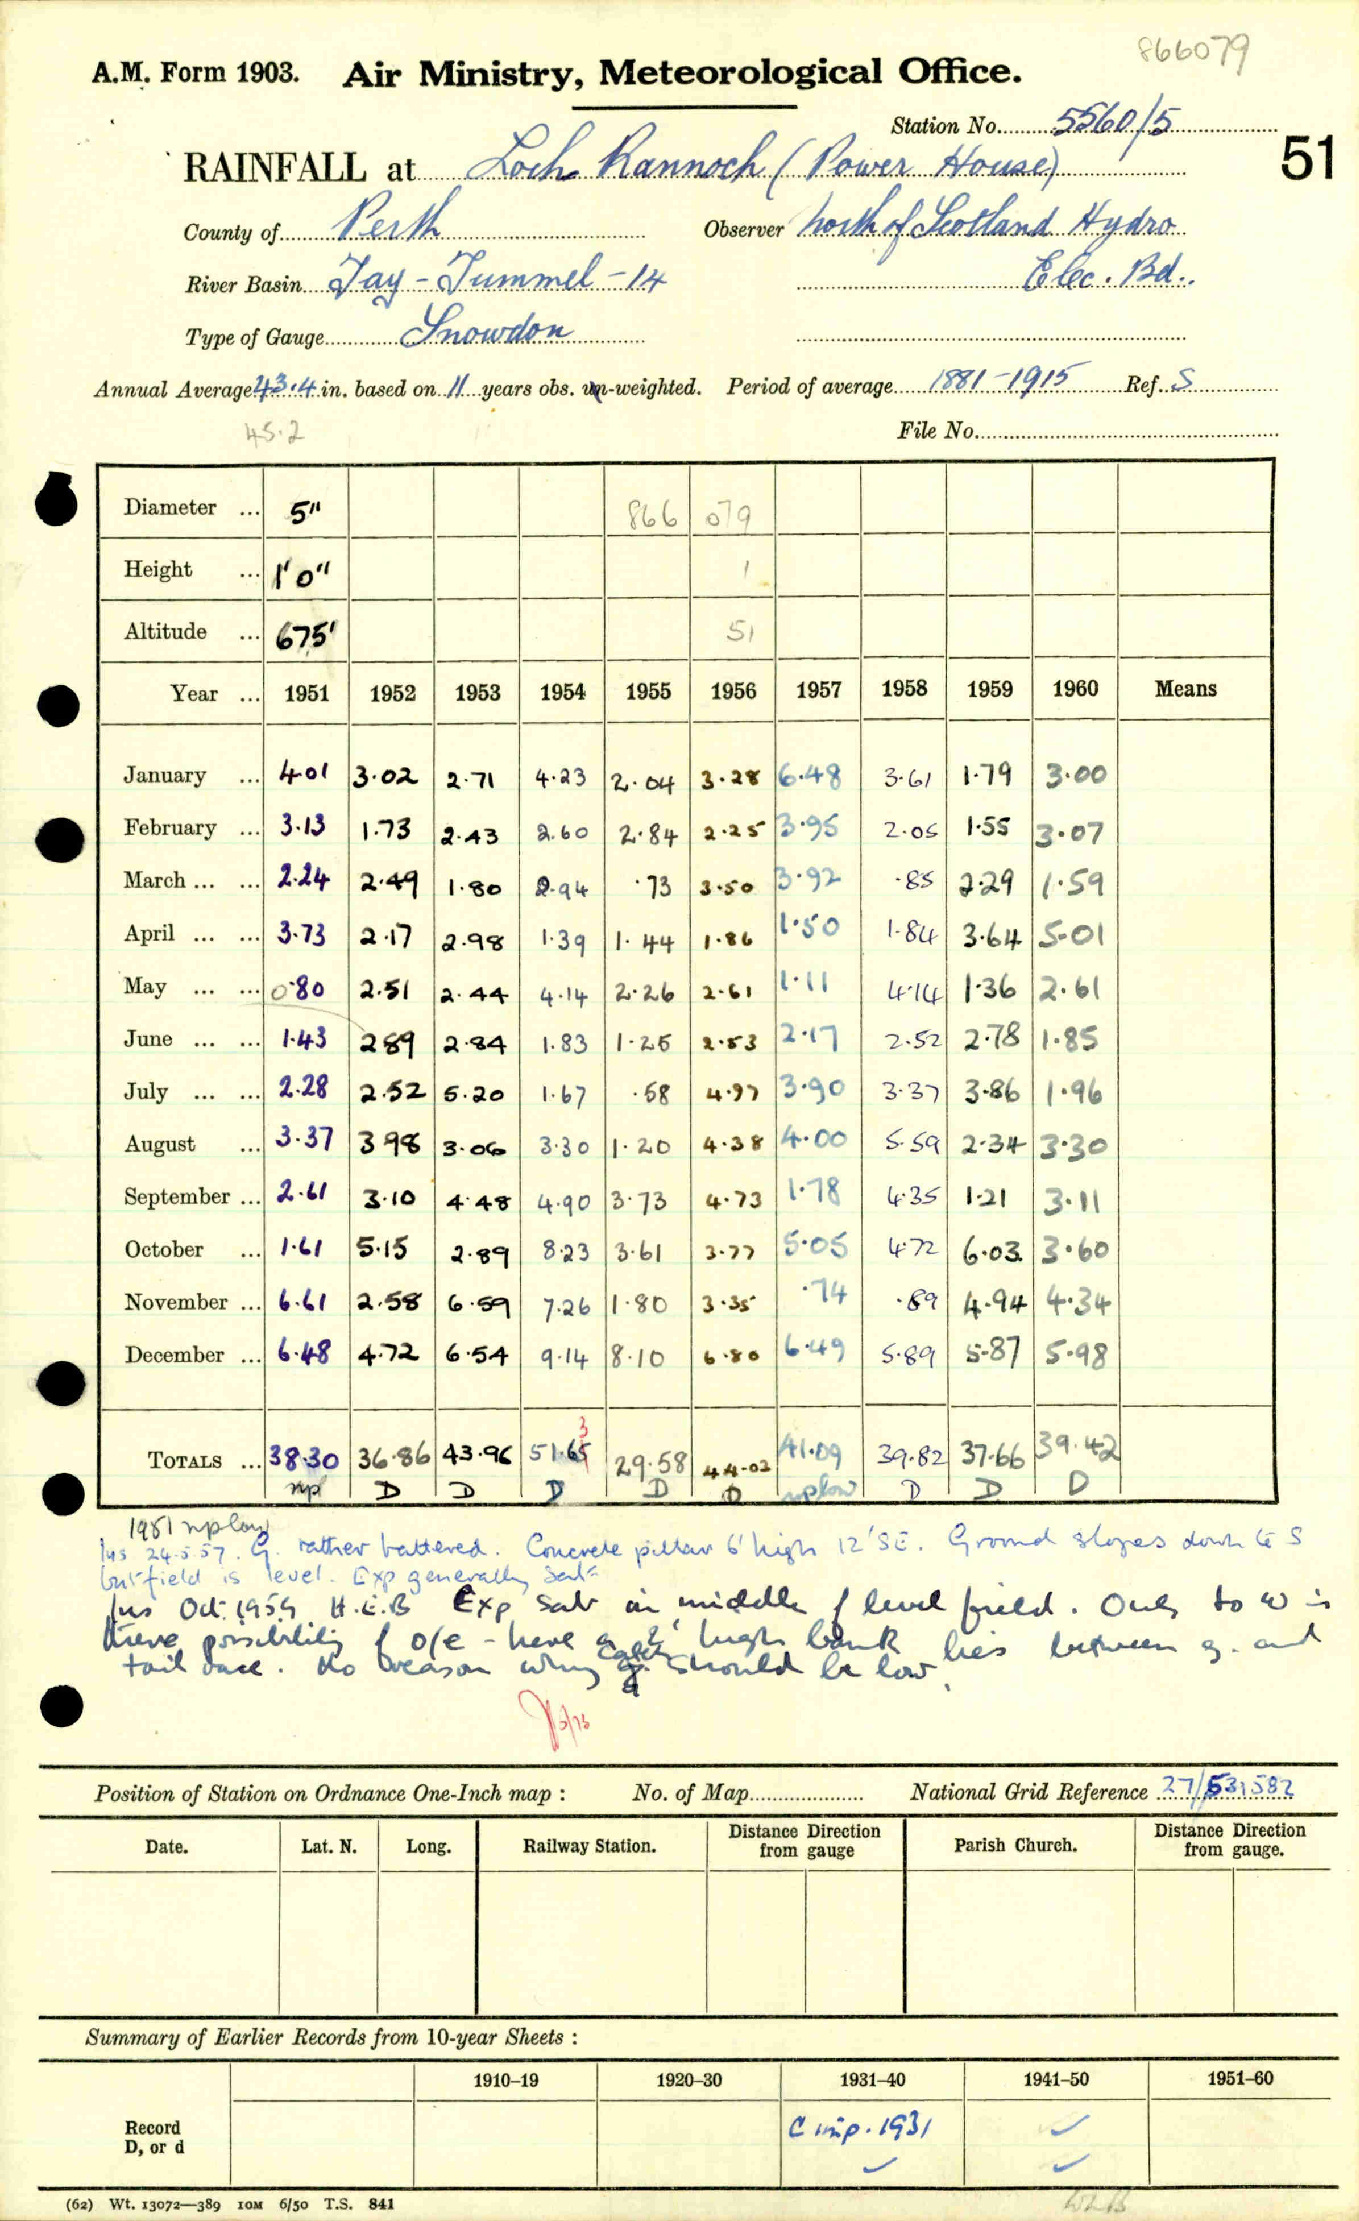 866079
A.M. Form 1903. Air Ministry, Meteorological Office.
Station No. 5560/5
RAINFALL at Loch Rannoch (Power House)
51
County of Perth Observer North of Scotland Hydro
River Basin Tay - Tummel - 14 Elec. Bd.
Type of Gauge Snowdon
Annual Average 43.4 in. based on 11 years obs. un-weighted. Period of average 1881-1915 Ref. S
45.2 File No.
Diameter ... 5" 866 079
Height ... 1'0" 1
Altitude ... 675' 51
Year ... 1951 1952 1953 1954 1955 1956 1957 1958 1959 1960 Means
January ... 4.01 3.02 2.71 4.23 2.04 3.28 6.48 3.61 1.79 3.00
February ... 3.13 1.73 2.43 2.60 2.84 2.25 3.95 2.05 1.55 3.07
March ... ... 2.24 2.49 1.80 2.94 .73 3.50 3.92 .85 2.29 1.59
April ... ... 3.73 2.17 2.98 1.39 1.44 1.86 1.50 1.84 3.64 5.01
May ... ... 0.80 2.51 2.44 4.14 2.26 2.61 1.11 4.14 1.36 2.61
June ... ... 1.43 2.89 2.84 1.83 1.25 2.53 2.17 2.52 2.78 1.85
July ... ... 2.28 2.52 5.20 1.67 .58 4.97 3.90 3.37 3.86 1.96
August ... 3.37 3.98 3.06 3.30 1.20 4.38 4.00 5.59 2.34 3.30
September ... 2.61 3.10 4.48 4.90 3.73 4.73 1.78 4.35 1.21 3.11
October ... 1.61 5.15 2.89 8.23 3.61 3.77 5.05 4.72 6.03 3.60
November ... 6.61 2.58 6.59 7.26 1.80 3.35 .74 .89 4.94 4.34
December ... 6.48 4.72 6.54 9.14 8.10 6.80 6.49 5.89 5.87 5.98
3
TOTALS ... 38.30 36.86 43.96 51.65 29.58 44.03 41.09 39.82 37.66 39.42
np D D D D D nplow D D D
1951 nplow
Ins 24.5.57. G. rather battered. Concrete pillar 6' high 12' SE. Ground slopes down to S
but field is level. Exp generally sat
Ins Oct. 1959 H.E.B Exp sat in middle of level field. Only to W is
there possibility of o/e - here a 2' high bank lies between g. and
tail race. No reason why catch should be low.
Position of Station on Ordnance One-Inch map : No. of Map National Grid Reference 27/531582
Date. Lat. N. Long. Railway Station. Distance from Direction gauge Parish Church. Distance from Direction gauge.
Summary of Earlier Records from 10-year Sheets :
1910–19 1920–30 1931–40 1941–50 1951–60
Record
D, or d
C inp. 1931 ✓
✓ ✓
(62) Wt. 13072—389 10M 6/50 T.S. 841